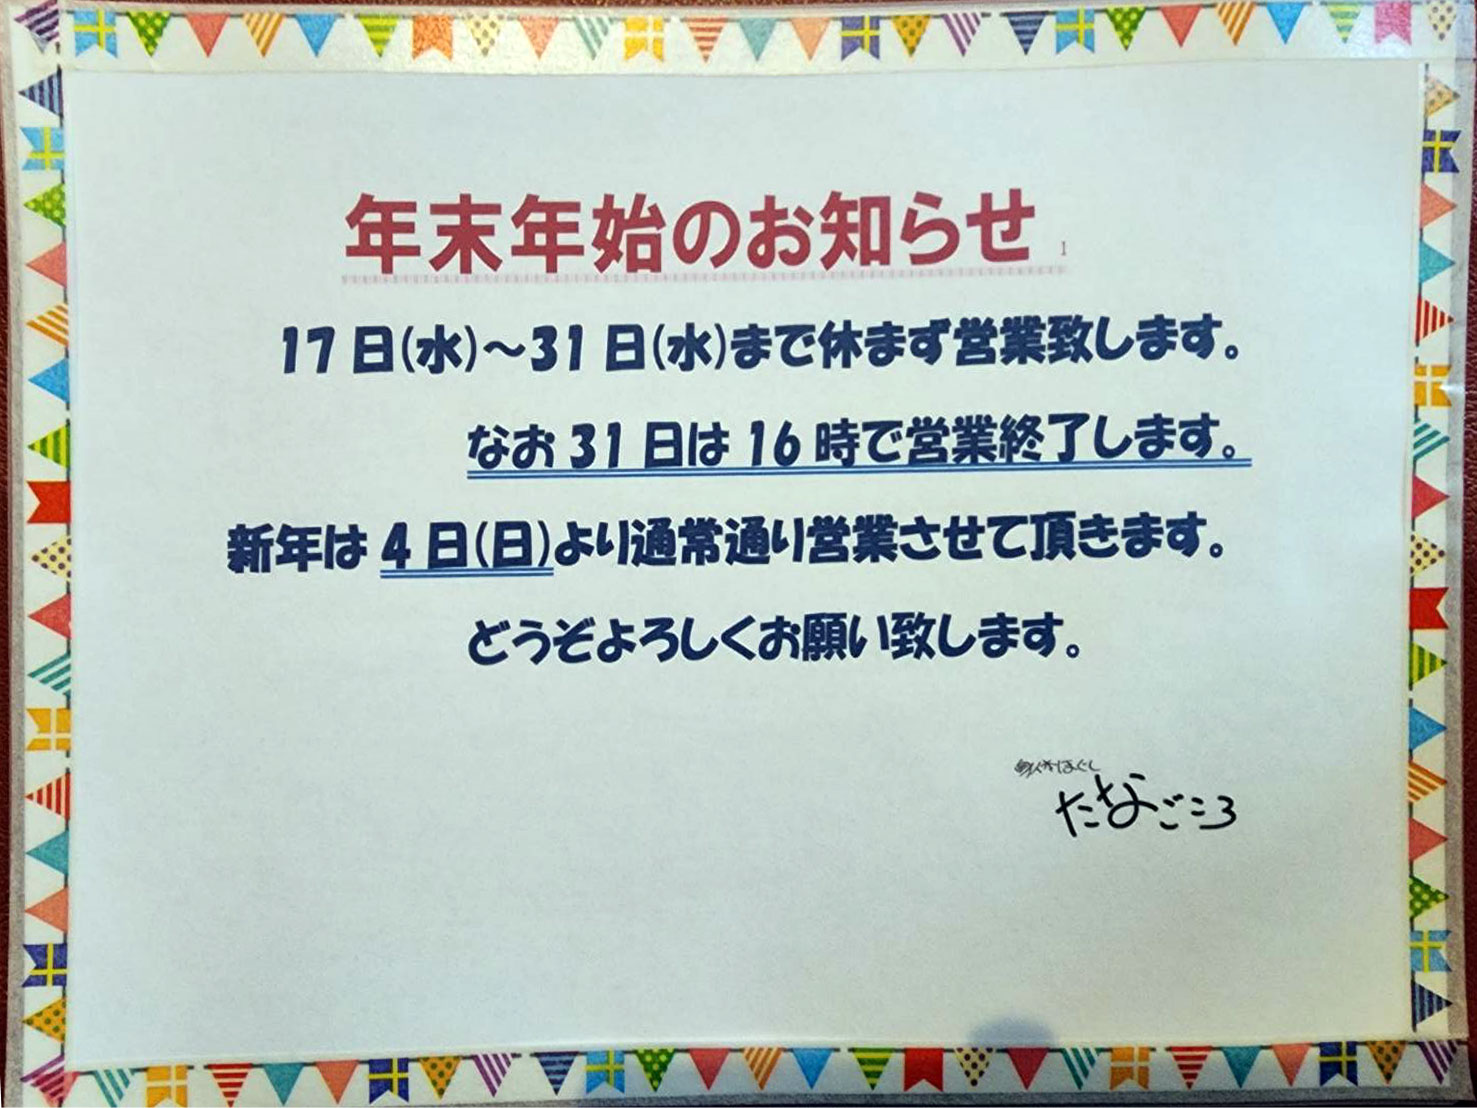 年末年始のお知らせ 1
17日(水)～31日(水)まで休まず営業致します。
なお31日は16時で営業終了します。
新年は4日(日)より通常通り営業させて頂きます。
どうぞよろしくお願い致します。
ほぐし
たなごころ